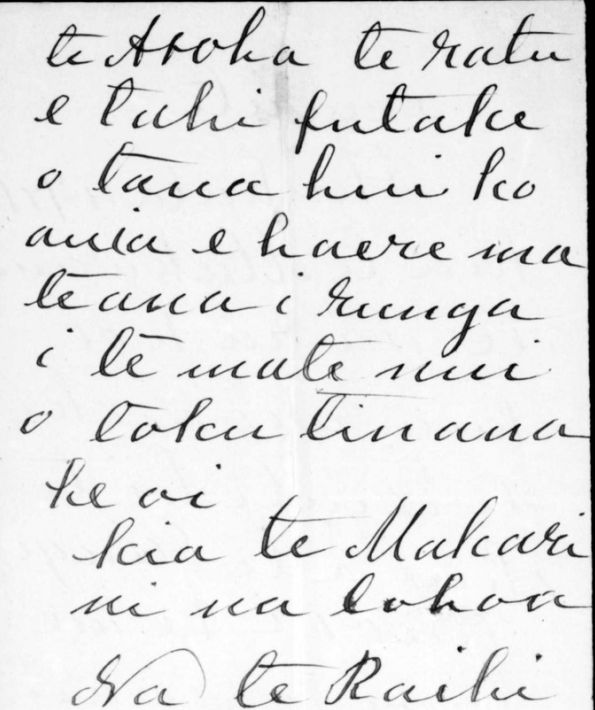 te Aroha te ratu
e tahi putake
o tana hui ko
auia e haere ma
teana i runga
i te mate nui
o toku tinana
heoi
kia te Makari
ni na tohoa
Na te Raihi